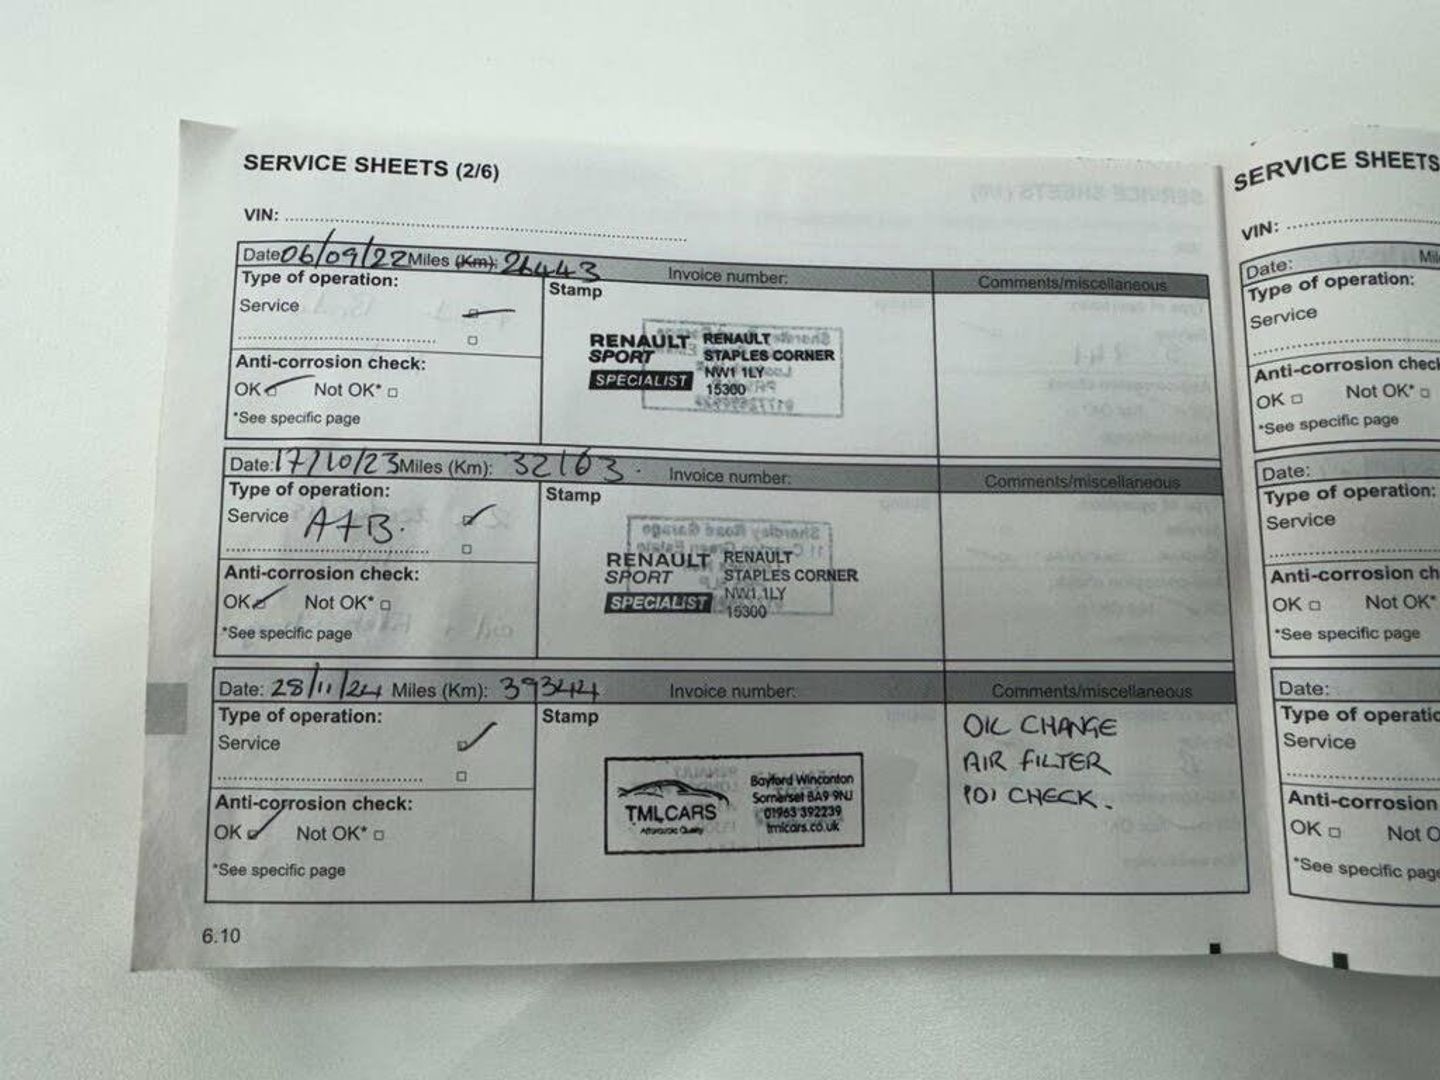 SERVICE SHEETS (2/6)
VIN:
Date 06/09/22 Miles (Km): 26443 Invoice number: Comments/miscellaneous
Type of operation:
Service
Stamp
RENAULT SPORT SPECIALIST
RENAULT
STAPLES CORNER
NW1 1LY
15300
Anti-corrosion check:
OK Not OK*
*See specific page
Date: 17/10/23 Miles (Km): 32163. Invoice number: Comments/miscellaneous
Type of operation:
Service A+B.
Stamp
RENAULT SPORT SPECIALIST
RENAULT
STAPLES CORNER
NW1 1LY
15300
Anti-corrosion check:
OK Not OK*
*See specific page
Date: 28/11/24 Miles (Km): 39344 Invoice number: Comments/miscellaneous
Type of operation:
Service
Stamp
TMLCARS
Affordable Quality
Bayford Wincanton
Somerset BA9 9NJ
01963 392239
tmlcars.co.uk
OIL CHANGE
AIR FILTER
PDI CHECK.
Anti-corrosion check:
OK Not OK*
*See specific page
6.10
SERVICE SHEETS
VIN:
Date:
Type of operation:
Service
Anti-corrosion
OK Not OK*
*See specific page
Date:
Type of operation:
Service
Anti-corrosion
OK Not OK*
*See specific page
Date:
Type of
Service
Anti-corrosion
OK Not
*See specific